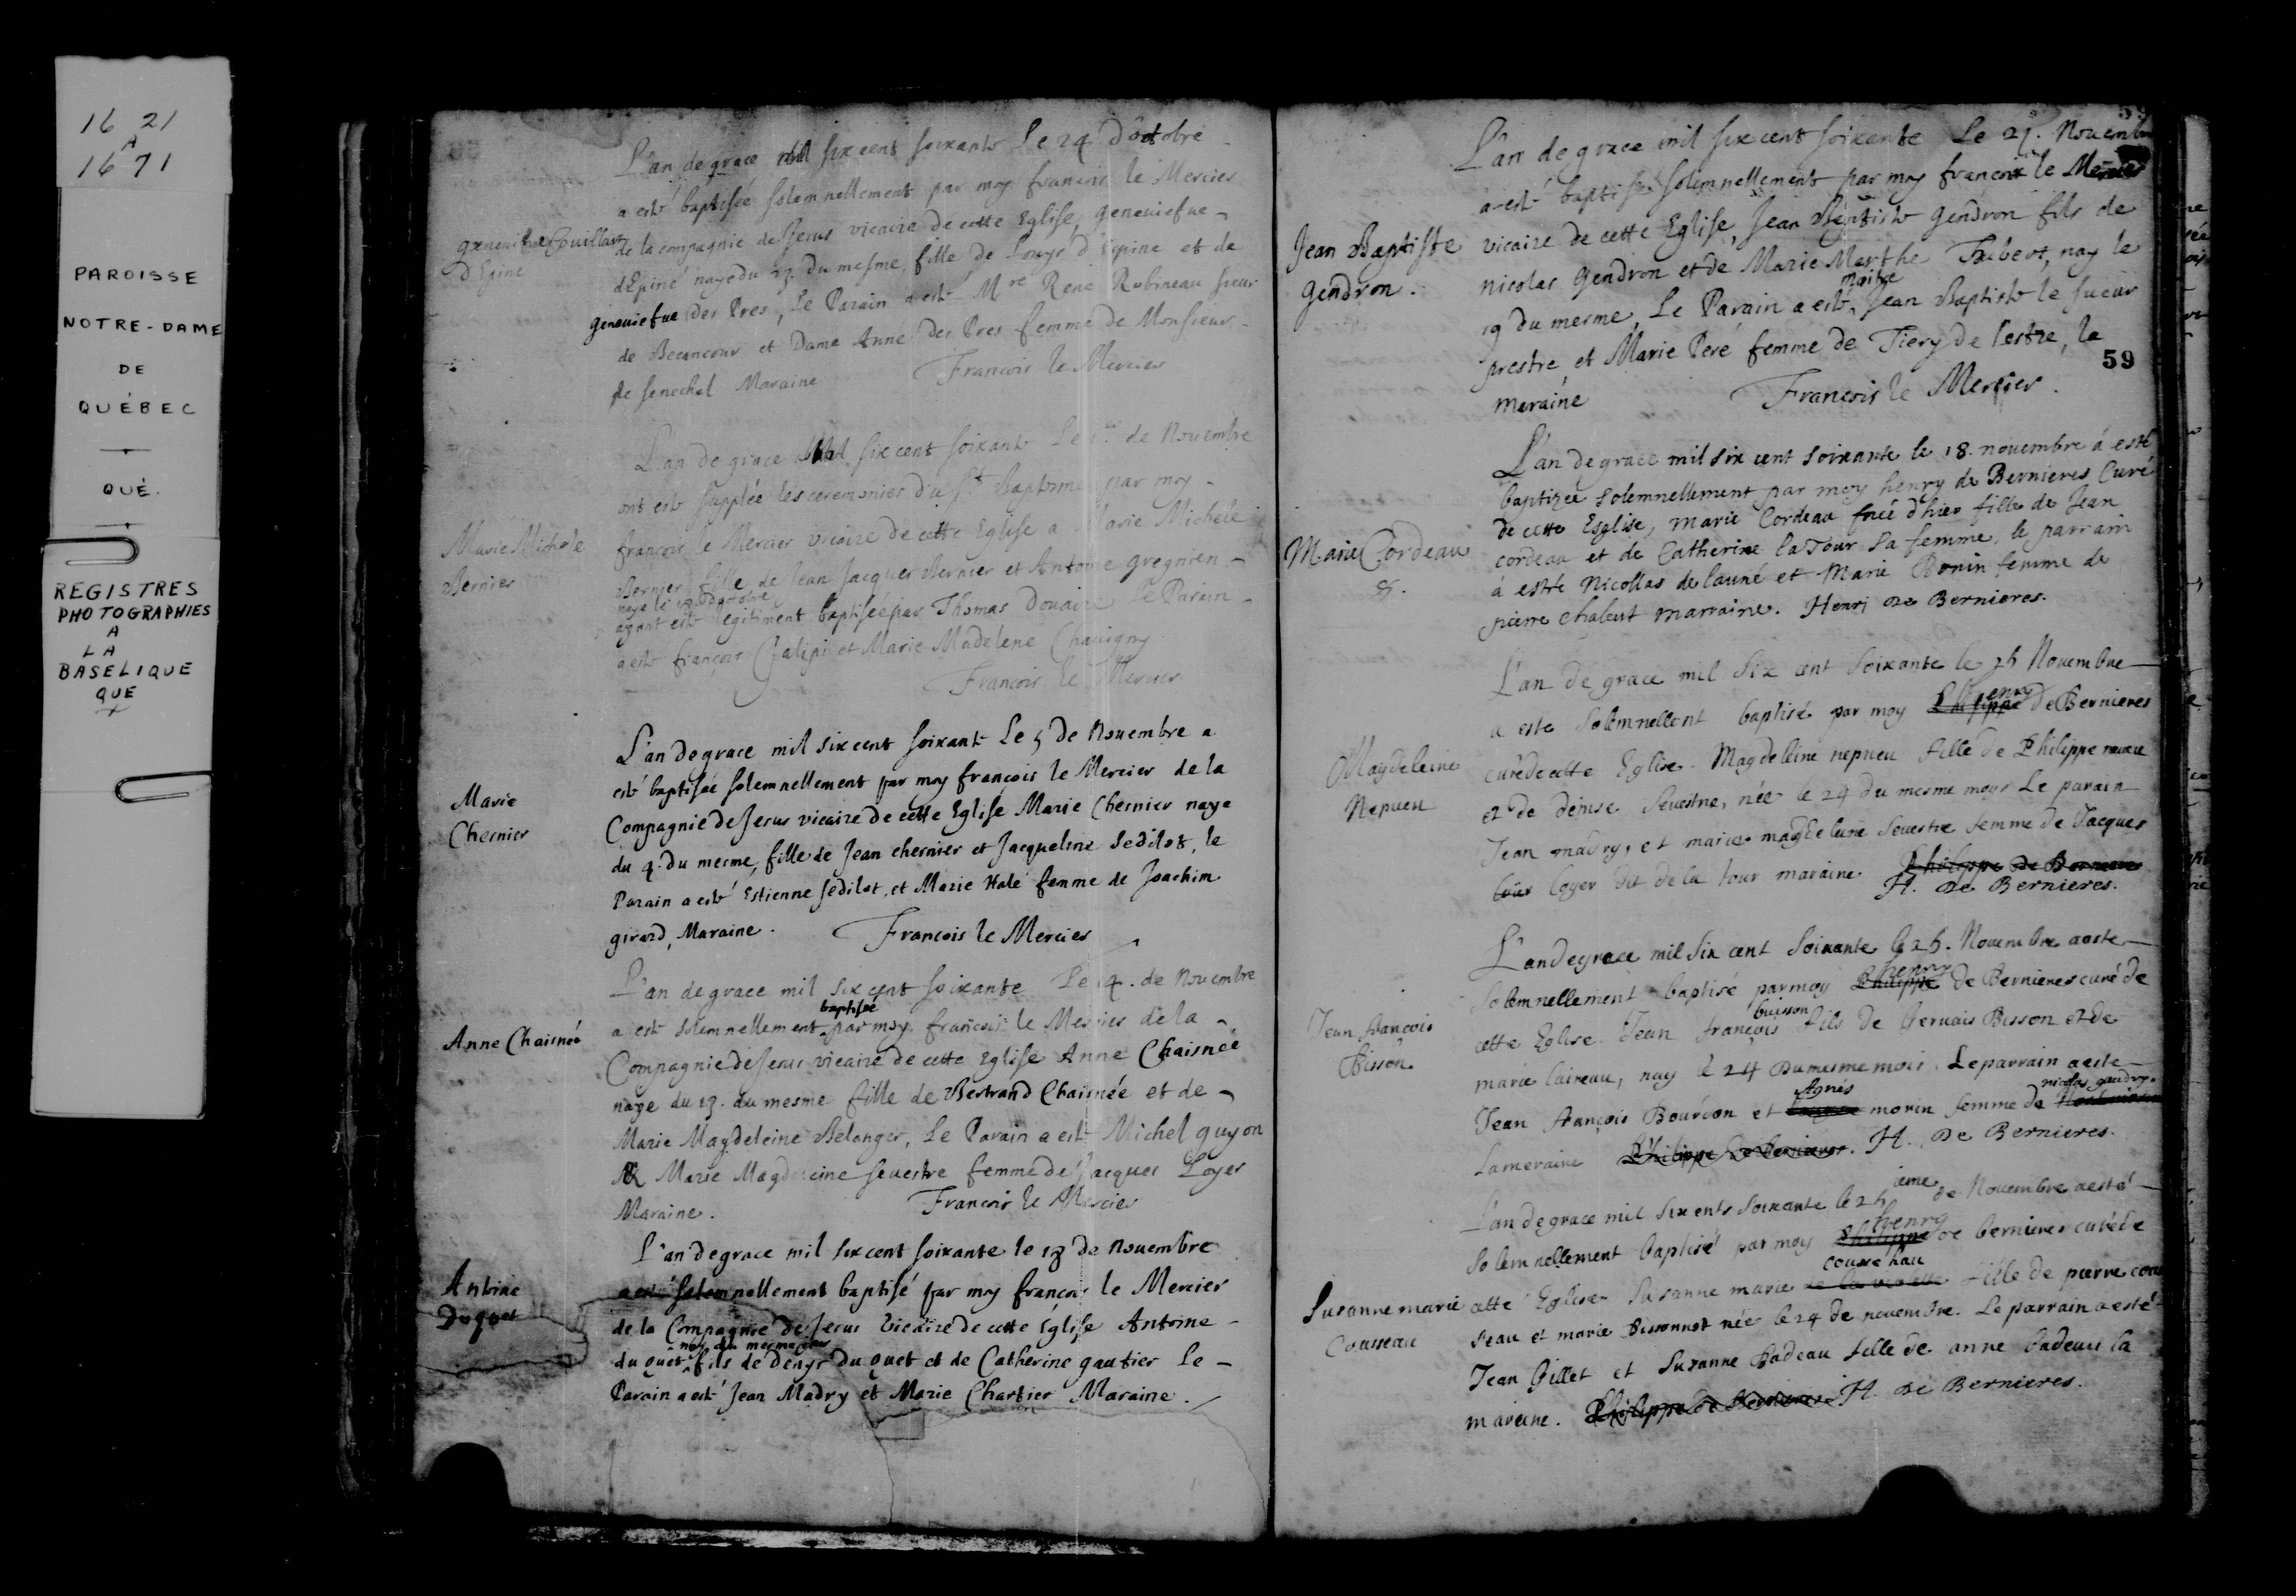 16 21
A
16 71
PAROISSE
NOTRE-DAME
DE
QUÉBEC
QUÉ.
REGISTRES
PHOTOGRAPHIES
A
LA
BASELIQUE
QUE
L'an de grace mil six cent soixante Le 24 d'octobre
a esté baptisée solemnellement par moy francois le Mercier
de la compagnie de Jesus vicaire de cette Eglise, geneuiefue
geneuiefue Couillart
d'Epine
d'Epine naye du 23 du mesme, fille de Louys d'Epine et de
geneuiefue des Pres, Le Parain a esté Mre René Robineau sieur
de Becancour et Dame Anne des Pres femme de Monsieur
le senechal Maraine
Francois le Mercier
L'an de grace mil six cent soixante Le 1er de Nouembre
ont esté supplée les ceremonies du st Baptisme par moy
francois le Mercier vicaire de cette Eglise a Marie Michele
Marie Michele
Bernier
Bernier fille de Jean Jacques Bernier et Antoine gregnien
naye le octobre
ayant esté legitiment baptisée par Thomas Douaire Le Parain
a esté françois et Marie Madelene Chauigny
Francois le Mercier
L'an de grace mil six cent soixante Le 5 de Nouembre a
esté baptisée solemnellement par moy françois le Mercier de la
Marie
Chernier
Compagnie de Jesus vicaire de cette Eglise Marie Chernier naye
du 4. du mesme, fille de Jean chernier et Jacqueline Sedilot, le
Parain a esté Estienne sedilot, et Marie Halé femme de Joachim
girard, Maraine.
Francois le Mercier
L'an de grace mil six cent soixante Le 14. de Nouembre
a esté solemnellement baptisée par moy françois le Mercier de la
Anne Chaisneé
Compagnie de Jesus vicaire de cette Eglise Anne Chaisneé
naye du 13. du mesme fille de Bertrand Chaisnée et de
Marie Magdeleine Belanger, Le Parain a esté Michel guyon
& Marie Magdeleine seuestre femme de Jacques Loyer
Maraine.
Francois le Mercier
L'an de grace mil six cent soixante le 18 de Nouembre
a esté solemnellement baptisé par moy françois le Mercier
Antoine
Duquet
de la Compagnie de Jesus Vicaire de cette Eglise Antoine
du quet nay du mesme fils de Denys du quet et de Catherine gautier le
Parain a esté Jean Madry et Marie Chartier Maraine.
L'an de grace mil six cent soixante Le 21. Nouembre
a esté baptisé solemnellement par moy françois le Mercier
Jean Baptiste
Gendron.
vicaire de cette Eglise, Jean Baptiste Gendron fils de
nicolas Gendron et de Marie Marthe Hubert, nay le
19 du mesme, Le Parain a esté maitre Jean Baptiste le sueur
prestre et Marie Peré femme de Tiery de lestre, la
59
Maraine
Francois le Mercier.
L'an de grace mil six cent soixante le 18. nouembre á esté
baptizée solemnellement par moy henry de Bernieres Curé
de cette Esglise, marie Cordeau neé d'hier fille de Jean
Marie Cordeau
cordeau et de Catherine la Tour sa femme, le parrain
á estté Nicollas de launé et Marie Bonin femme de
pierre chalust marraine. Henri de Bernieres.
L'an de grace mil six cent soixante le 25 Nouembre
a este solemnellent baptisé par moy Philippe henry de Bernieres
Magdeleine
Nepueu
curé de cette Eglise. Magdeleine nepueu fille de Philippe
et de denise Seuestre, née le 24 du mesme moys Le parain
Jean madry, et marie magdeleine Seuestre femme de Jacques
loyer dit de la tour maraine Philippe de Bernieres
H. de Bernieres.
L'an de grace mil six cent soixante le 25. Nouembre a este
solemnellement baptisé par moy Philippe henry de Bernieres curé de
Jean francois
Bisson.
cette Eglise Jean françois buisson fils de Geruais Bisson et de
marie laireau, nay le 24 du mesme mois. Le parrain a este
Jean françois Bourdon et Agnés morin femme de nicolas gaudry.
la meraine Philippe de Bernieres. H. de Bernieres.
L'an de grace mil six cents soixante le 25ieme de Nouembre a esté
solemnellement baptisé par moy Philippe henry de bernieres curé de
Suzanne marie
Cousseau
cette Eglise Susanne marie fille de pierre cous
seau et marie Bissonnet née le 24 de nouembre. Le parrain a esté
Jean Gillet et Susanne Badeau fille de anne badeau la
mareine. Philippe de Bernieres H. de Bernieres.